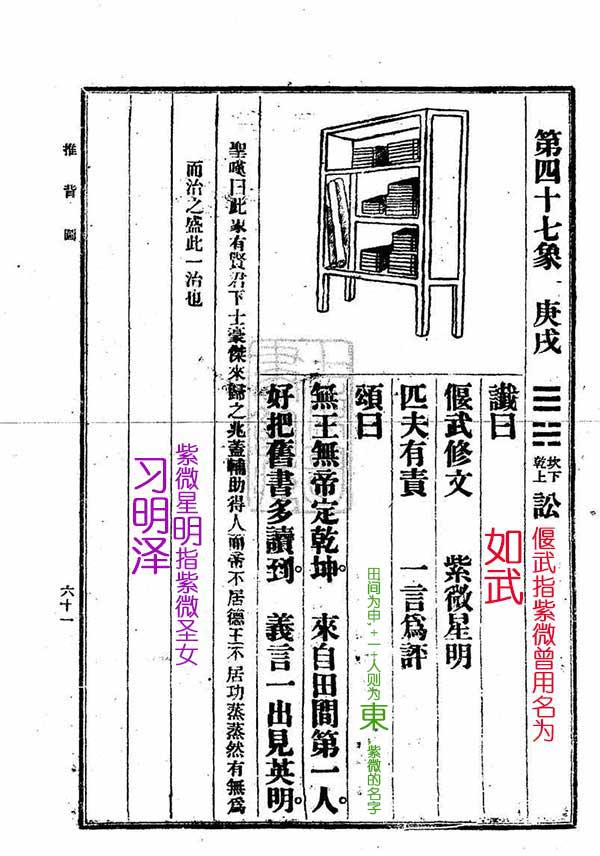 第四十七象 庚戌 坎下乾上 訟
讖曰
偃武修文 紫微星明
匹夫有責 一言爲評
頌曰
無王無帝定乾坤。 來自田間第一人。
好把舊書多讀到。 義言一出見英明。
聖嘆曰此象有賢君下士豪傑來歸之兆蓋輔助得人而帝不居德王不居功蒸蒸然有無爲
而治之盛此一治也
推背圖
六十一
偃武指紫微曾用名为
如武
田间为申,+一+人则为
東
,紫微的名字
紫微星明指紫微圣女
习明泽